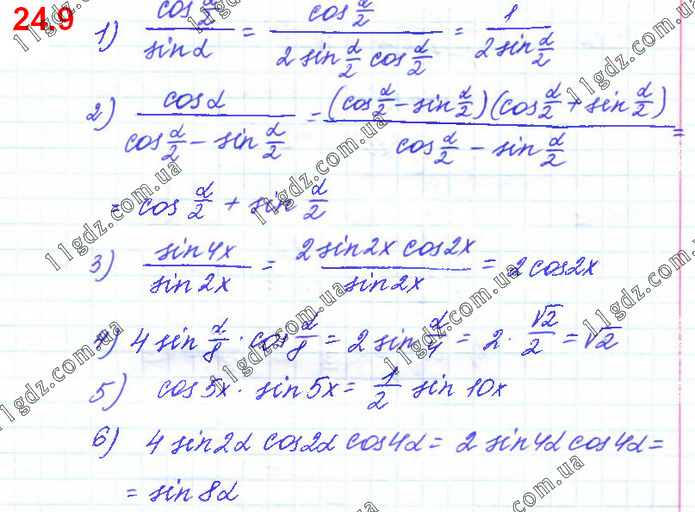 24.9
1) cos α/2 / sin α = cos α/2 / 2 sin α/2 cos α/2 = 1 / 2 sin α/2
2) cos α / cos α/2 − sin α/2 = (cos α/2 − sin α/2)(cos α/2 + sin α/2) / cos α/2 − sin α/2 =
= cos α/2 + sin α/2
3) sin 4x / sin 2x = 2 sin 2x cos 2x / sin 2x = 2 cos 2x
4) 4 sin α/8 · cos α/8 = 2 sin α/4 = 2 · √2/2 = √2
5) cos 5x · sin 5x = 1/2 sin 10x
6) 4 sin 2α cos 2α cos 4α = 2 sin 4α cos 4α =
= sin 8α
11gdz.com.ua